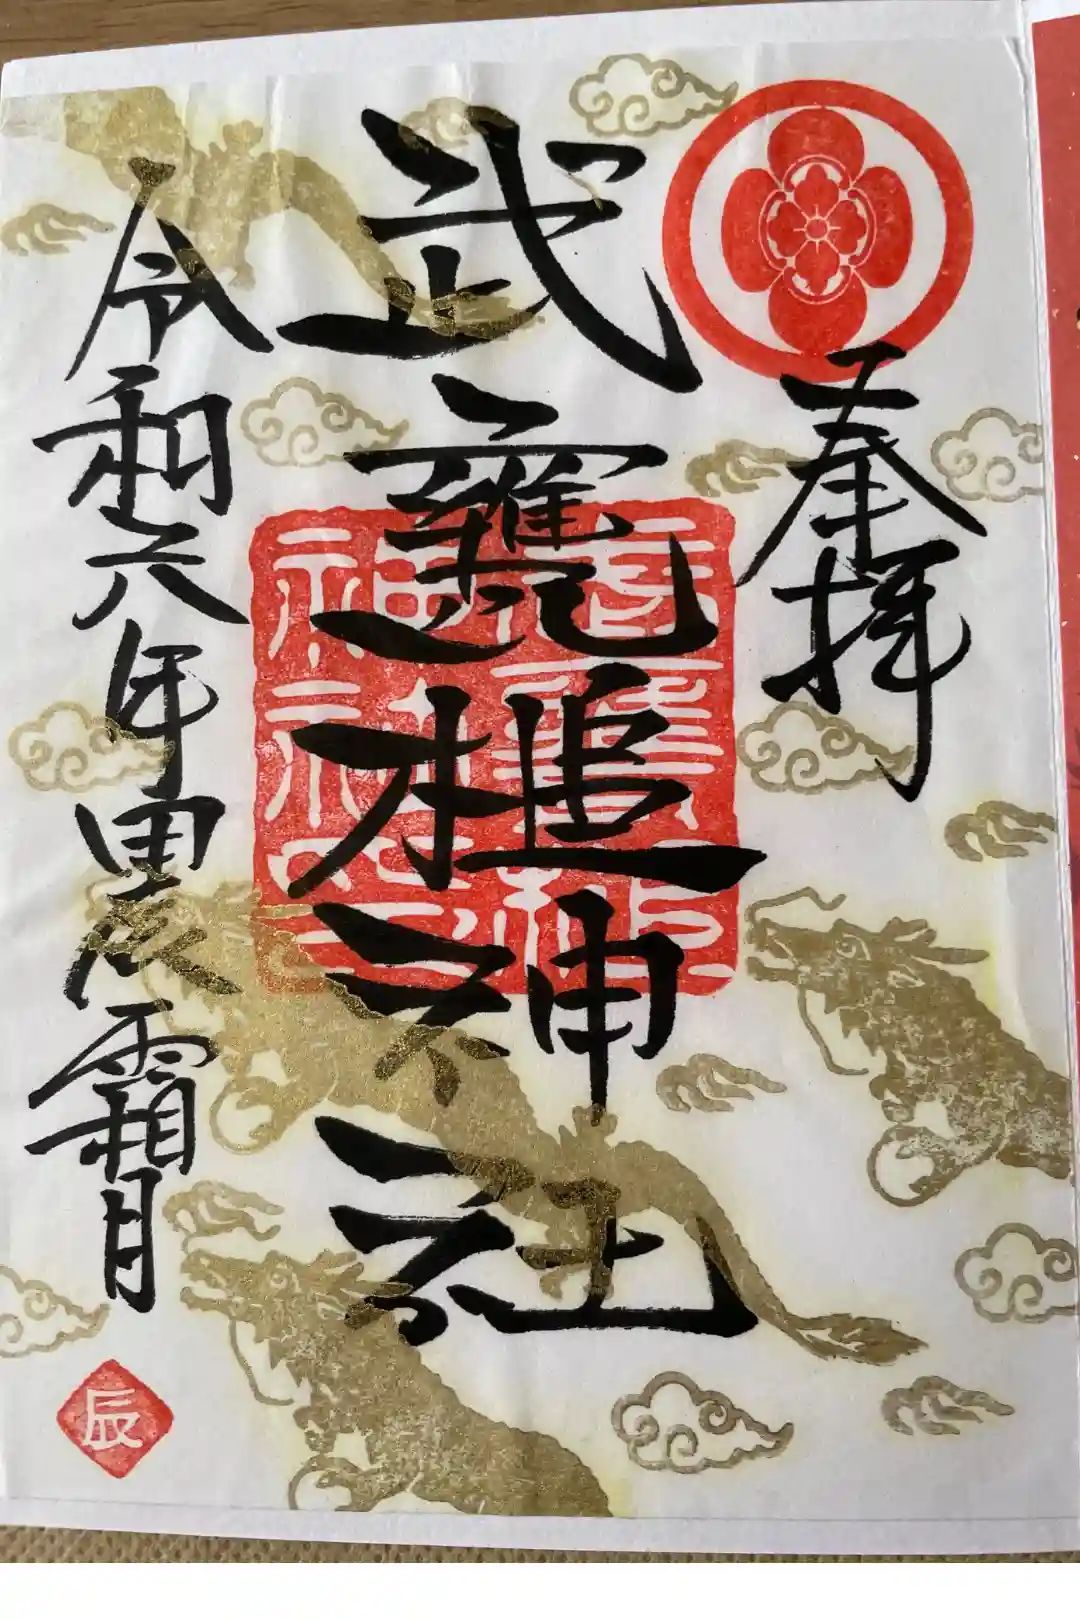 奉拝
武甕槌神社
令和六年甲辰霜月
辰